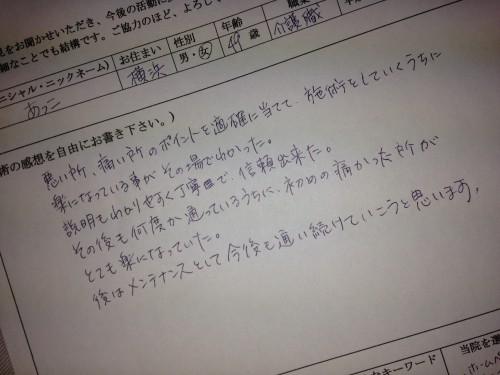 見をお聞かせいただき、今後の活動に
細なことでも結構です。ご協力のほど、よろし
ニシャル・ニックネーム) お住まい 性別 年齢
あっこ 横浜 男・女 49 歳 介護職
術の感想を自由にお書き下さい。)
悪い所、痛い所のポイントを適確に当てて、施術をしていくうちに
楽になっている事がその場でわかった。
説明もわかりやすく丁寧で、信頼出来た。
その後も何度か通っているうちに、初めの痛かった所が
とても楽になっていた。
後はメンテナンスとして今後も通い続けていこうと思います。
なキーワード 当院を選
ホームペ